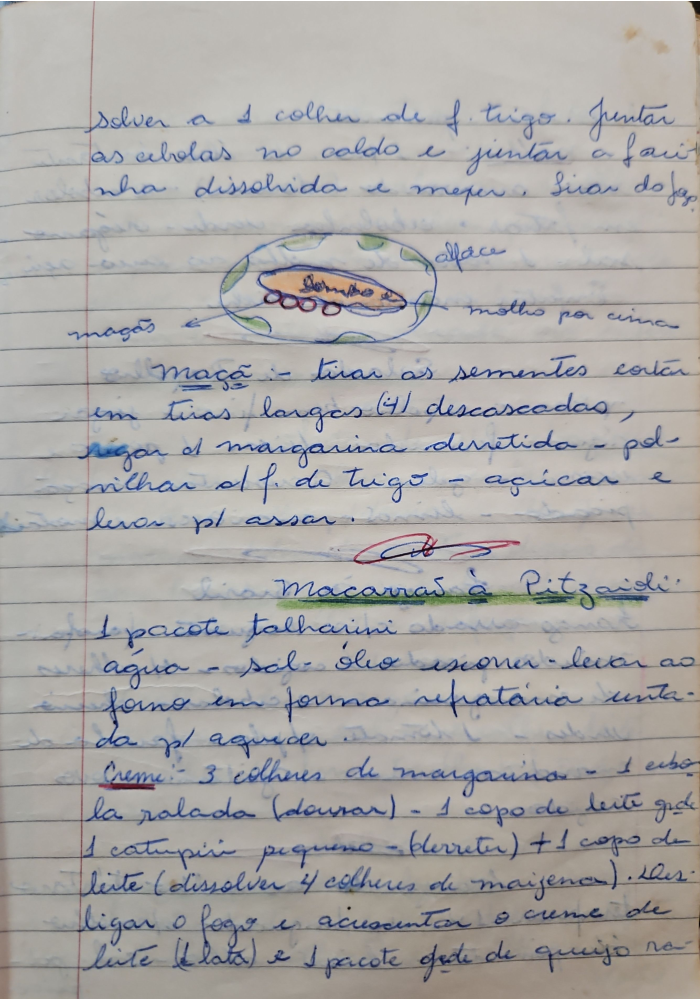 solver a 1 colher de f. trigo. Juntar
as cebolas no caldo e juntar a fari
nha dissolvida e mexer. Tirar do fogo.
alface
Lombo
molho por cima
maçãs
Maçã :- tirar as sementes cortar
em tiras largas (4) descascadas,
regar c/ margarina derretida - pol-
vilhar c/ f. de trigo - açúcar e
levar p/ assar.
Macarrão à Pitzaioli
1 pacote talharini
água - sal - óleo escorrer - levar ao
forno em forma refratária unta-
da p/ aquecer.
Creme :- 3 colheres de margarina - 1 cebo
la ralada (dourar) - 1 copo de leite gde
1 catupiri pequeno - (derreter) + 1 copo de
leite (dissolver 4 colheres de maizena). Des-
ligar o fogo e acrescentar o creme de
leite (1 lata) e 1 pacote gde de queijo ra-